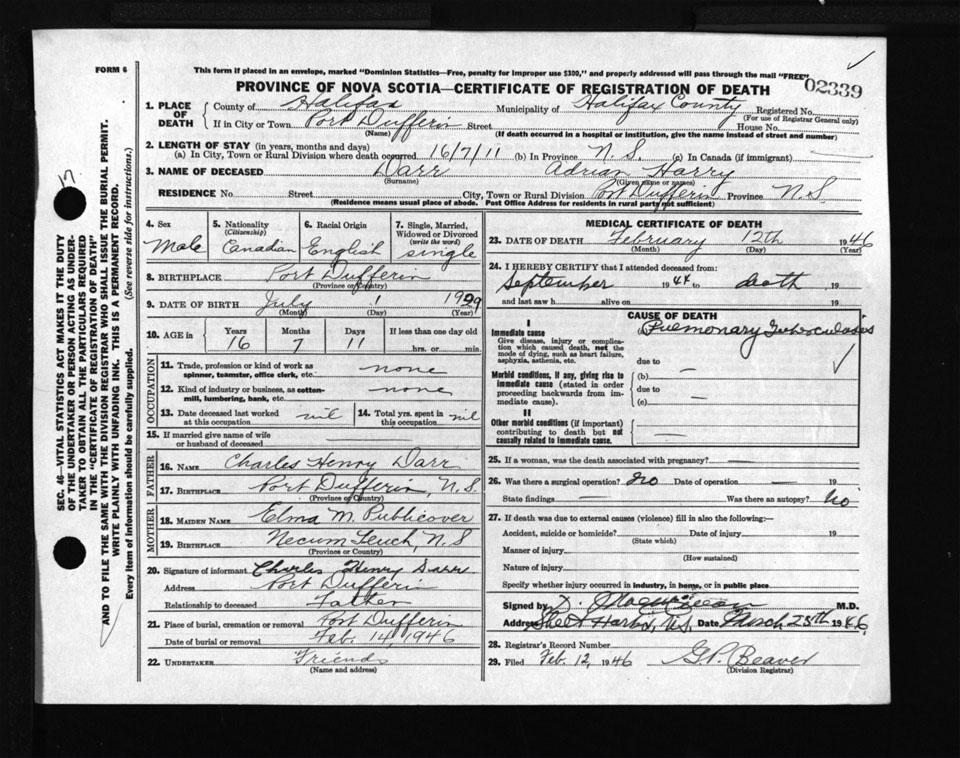 FORM 6
This form if placed in an envelope, marked "Dominion Statistics—Free, penalty for improper use $300," and properly addressed will pass through the mail "FREE"
02339
PROVINCE OF NOVA SCOTIA—CERTIFICATE OF REGISTRATION OF DEATH
1. PLACE OF DEATH
County of Halifax Municipality of Halifax County Registered No.
(For use of Registrar General only)
If in City or Town Port Dufferin Street House No.
(Name) (If death occurred in a hospital or institution, give the name instead of street and number)
2. LENGTH OF STAY (in years, months and days)
(a) In City, Town or Rural Division where death occurred 16/7/11 (b) In Province N.S. (c) In Canada (if immigrant) —
3. NAME OF DECEASED Darr Adrian Harry
(Surname) (Given name or names)
RESIDENCE No. Street City, Town or Rural Division Port Dufferin Province N.S
(Residence means usual place of abode. Post Office Address for residents in rural parts not sufficient)
4. Sex
Male
5. Nationality (Citizenship)
Canadian
6. Racial Origin
English
7. Single, Married, Widowed or Divorced (write the word)
single
8. BIRTHPLACE Port Dufferin
(Province or Country)
9. DATE OF BIRTH July 1 1929
(Month) (Day) (Year)
10. AGE in Years Months Days If less than one day old
16 7 11 hrs. or min.
OCCUPATION
11. Trade, profession or kind of work as spinner, teamster, office clerk, etc. none
12. Kind of industry or business, as cotton-mill, lumbering, bank, etc. none
13. Date deceased last worked at this occupation nil
14. Total yrs. spent in this occupation nil
15. If married give name of wife or husband of deceased
FATHER
16. NAME Charles Henry Darr
17. BIRTHPLACE Port Dufferin, N.S.
(Province or Country)
MOTHER
18. MAIDEN NAME Elma M. Publicover
19. BIRTHPLACE Necum Teuch, N.S
(Province or Country)
20. Signature of informant Charles Henry Darr
Address Port Dufferin
Relationship to deceased Father
21. Place of burial, cremation or removal Port Dufferin
Date of burial or removal Feb. 14, 1946
22. UNDERTAKER Friends
(Name and address)
MEDICAL CERTIFICATE OF DEATH
23. DATE OF DEATH February 12th 1946
(Month) (Day) (Year)
24. I HEREBY CERTIFY that I attended deceased from:
September 1944 to death 19
and last saw h alive on 19
CAUSE OF DEATH
I
Immediate cause
Give disease, injury or complication which caused death, not the mode of dying, such as heart failure, asphyxia, asthenia, etc.
(a) Pulmonary Tuberculosis
due to
Morbid conditions, if any, giving rise to immediate cause (stated in order proceeding backwards from immediate cause).
(b) —
due to
(c) —
II
Other morbid conditions (if important) contributing to death but not causally related to immediate cause.
25. If a woman, was the death associated with pregnancy? —
26. Was there a surgical operation? No Date of operation — 19
State findings — Was there an autopsy? No
27. If death was due to external causes (violence) fill in also the following:—
Accident, suicide or homicide? Date of injury 19
(State which)
Manner of injury
(How sustained)
Nature of injury
Specify whether injury occurred in industry, in home, or in public place
Signed by M.D.
Address Sheet Harbor, N.S. Date March 25th 1946
28. Registrar's Record Number
29. Filed Feb. 12, 1946 G.P. Beaver
(Division Registrar)
SEC. 46—VITAL STATISTICS ACT MAKES IT THE DUTY
OF THE UNDERTAKER OR PERSON ACTING AS UNDER-
TAKER TO OBTAIN ALL THE PARTICULARS REQUIRED
IN THE "CERTIFICATE OF REGISTRATION OF DEATH"
AND TO FILE THE SAME WITH THE DIVISION REGISTRAR WHO SHALL ISSUE THE BURIAL PERMIT.
WRITE PLAINLY WITH UNFADING INK. THIS IS A PERMANENT RECORD.
Every item of information should be carefully supplied. (See reverse side for instructions.)